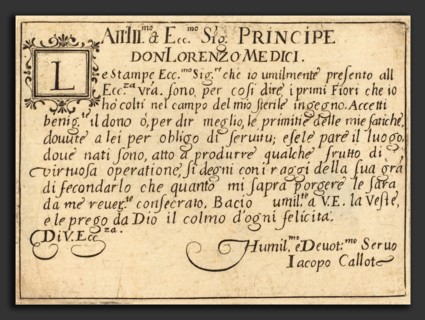 All Ill.mo et Ecc.mo Sig. PRINCIPE
DON LORENZO MEDICI.
Le Stampe Ecc.mo Sig.re che io umilmente presento all
Ecc.za vra. sono, per cosi dire, i primi Fiori che io
hò colti nel campo del mio sterile ingegno. Accetti
benig.te il dono ò, per dir meglio, le primitie delle mie fatiche,
douute a lei per obligo di seruitu; e se le pare il luogo,
doue nati sono, atto a produrre qualche frutto di
virtuosa operatione, si degni con i raggi della sua gra
di fecondarlo che quanto mi saprà porgere le sarà
da me reuer.te consecrato. Bacio umil.te a V.E. la Veste,
e le prego da Dio il colmo d'ogni felicita.
Di V. Ecc.za.
Humil.mo e Deuot.mo Seruo
Iacopo Callot